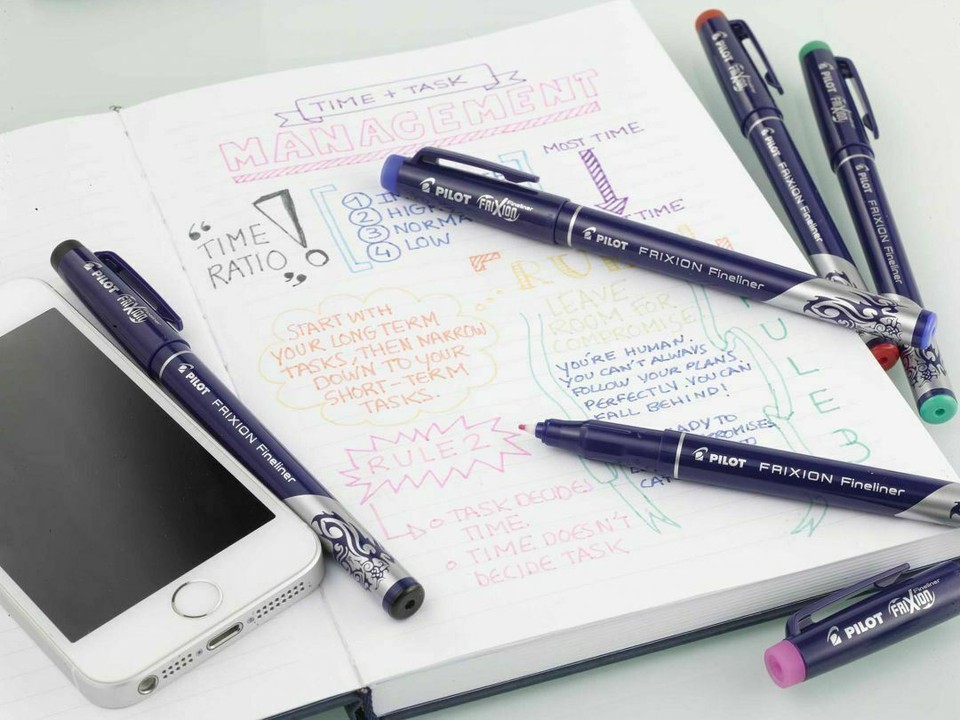 TIME + TASK
MANAGEMENT
MOST TIME
TIME
"TIME
RATIO"
!
1
2 HIGH
3 NORMA
4 LOW
START WTH
YOUR LONG TERM
TASKS, THEN NARROW
DOWN TO YOUR
SHORT-TERM
TASKS.
RULE 2
TASK DECIDES
TIME.
TIME DOESN'T
DECIDE TASK
ROOM FOR
YOU'RE HUMAN.
YOU CAN'T ALWAYS
FOLLOW YOUR PLANS.
PERFECTLY. YOU CAN
FALL BEHIND!
U
L
E
3
PILOT FRIXION Fineliner
PILOT FRIXION Fineliner
PILOT FRIXION Fineliner
PILOT FRIXION Fineliner
PILOT FRIXION Fineliner
PILOT FRIXION Fineliner
PILOT FRIXION Fineliner
PILOT FRIXION Fineliner
PILOT FRIXION Fineliner
PILOT FRIXION Fineliner